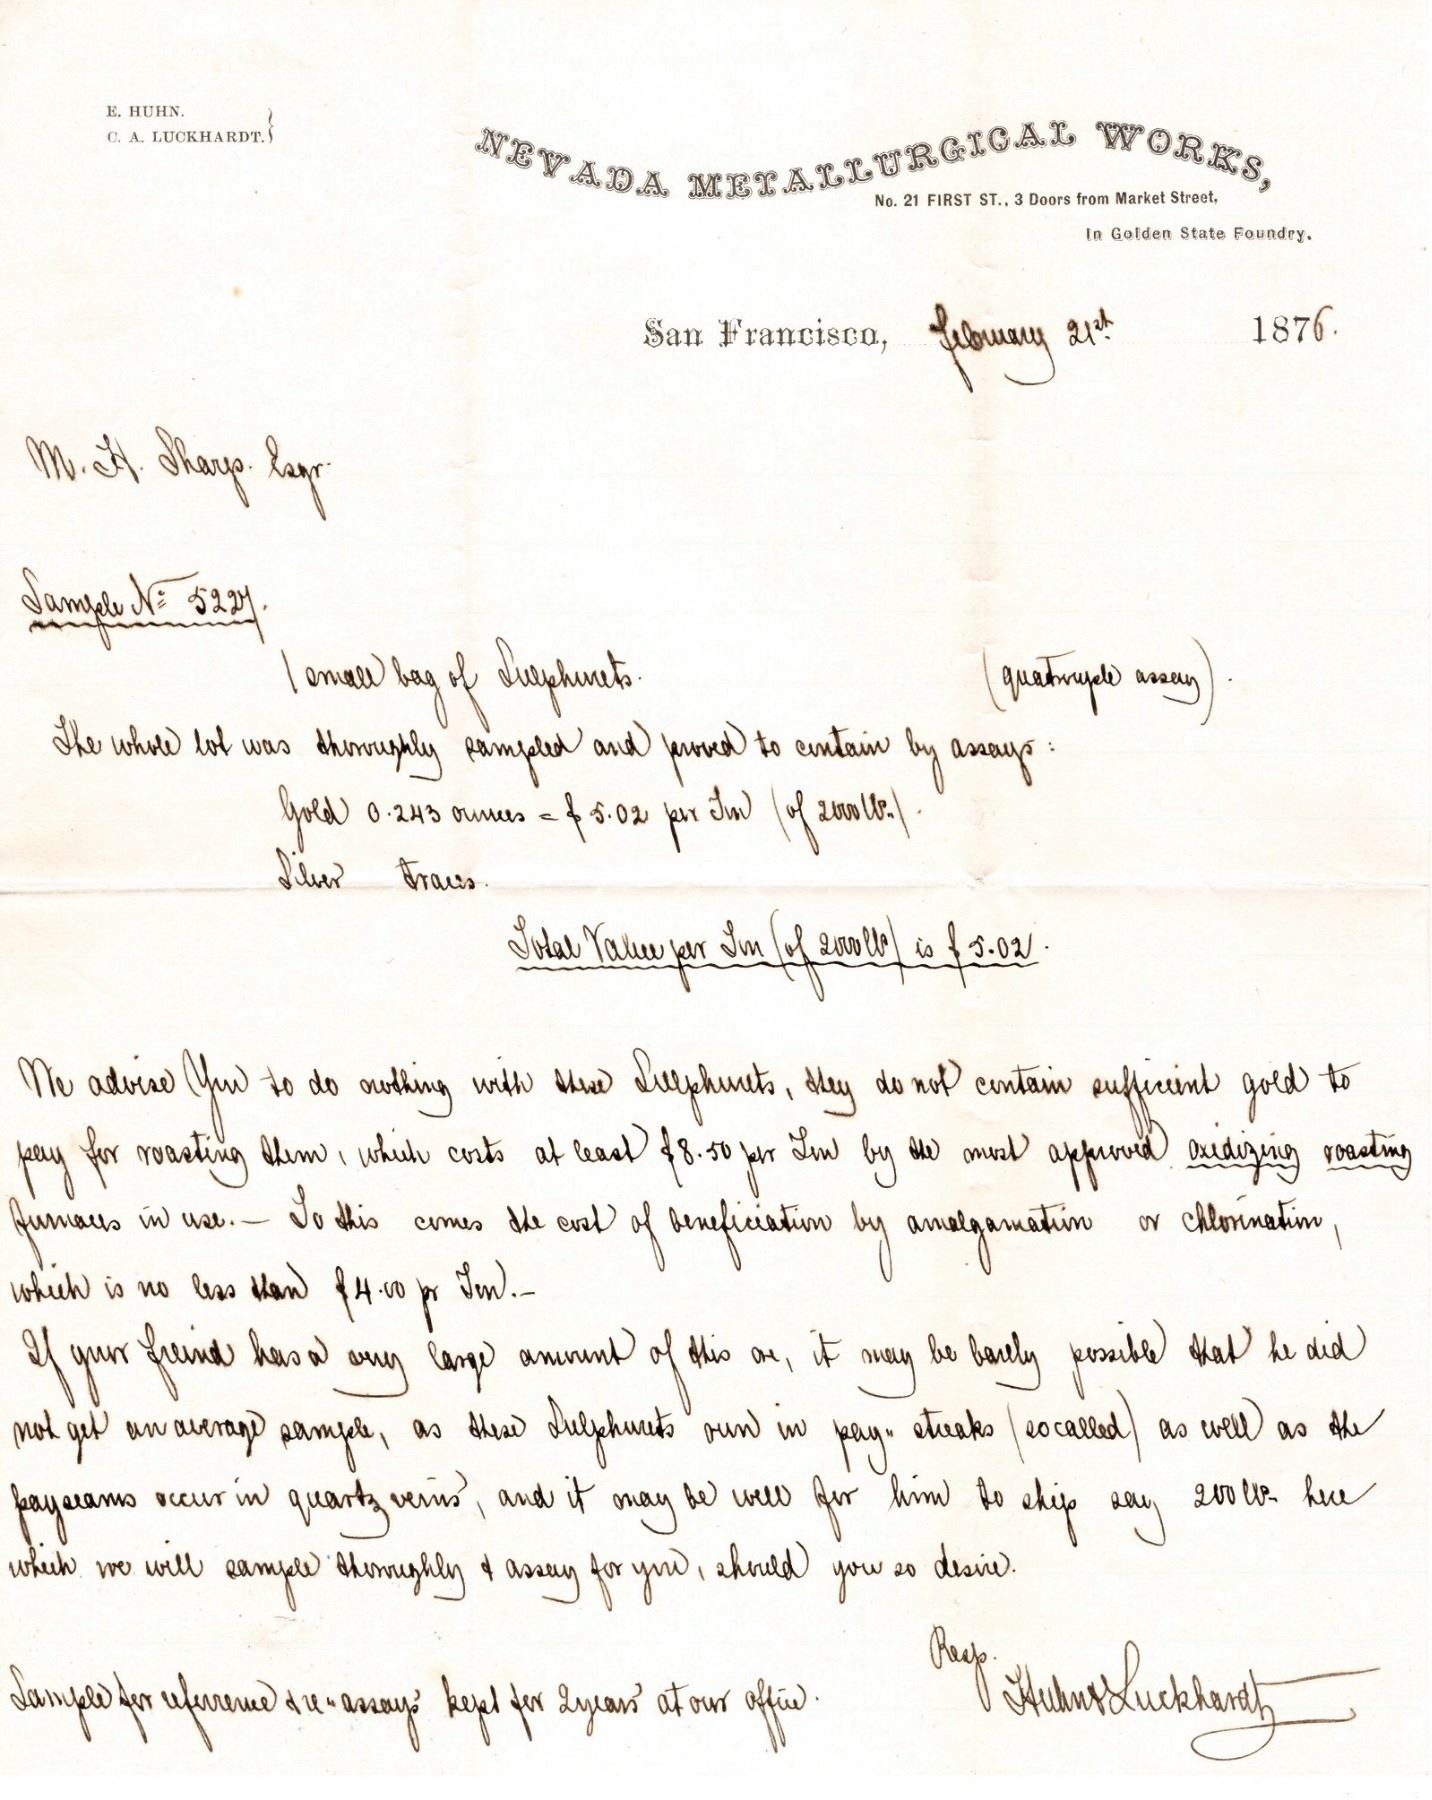 E. HUHN.
C. A. LUCKHARDT.
NEVADA METALLURGICAL WORKS,
No. 21 FIRST ST., 3 Doors from Market Street,
In Golden State Foundry.
San Francisco, February 21st 1876.
M. H. Sharp. Esqr.
Sample No. 5227.
1 small bag of Sulphurets. (quatruple assay).
The whole lot was thoroughly sampled and proved to contain by assays:
Gold 0.243 ounces = $5.02 per Ton (of 2000 lb.).
Silver traces.
Total Value per Ton (of 2000 lb) is $5.02.
We advise You to do nothing with these Sulphurets, they do not contain sufficient gold to
pay for roasting them, which costs at least $8.50 per Ton by the most approved oxidizing roasting
furnaces in use. — To this comes the cost of beneficiation by amalgamation or chlorination,
which is no less than $4.00 pr Ton. —
If your freind has a very large amount of this ore, it may be barely possible that he did
not get an average sample, as these Sulphurets run in pay-streaks (so called) as well as the
payseams occur in quartz veins, and it may be well for him to ship say 200 lb. here
which we will sample thoroughly & assay for you, should you so desire.
Resp.
Huhn & Luckhardt
Sample for referrence & re-assays kept for 2 years at our office.